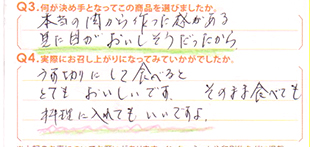 Q3.何が決め手となってこの商品を選びましたか。
本当の肉から作った様がある
見た目がおいしそうだったから
Q4.実際にお召し上がりになってみていかがでしたか。
うす切りにして食べると
とてもおいしいです. そのまま食べても
料理に入れてもいいですよ.